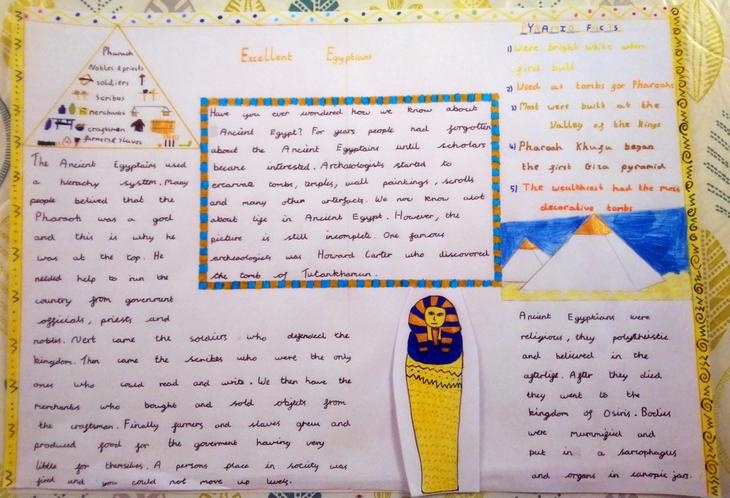 Excellent Egyptians
Pharaoh
Nobles & priests
soldiers
Scribes
merchants
craftsmen
farmers & slaves
The Ancient Egyptians used
a hierachy system. Many
people belived that the
Pharaoh was a god
and this is why he
was at the top. He
needed help to run the
country from government
officials, priests and
nobles. Next came the soldiers who defended the
kingdom. Then came the scribes who were the only
ones who could read and write. We then have the
merchants who bought and sold objects from
the craftsman. Finally farmers and slaves grew and
produced food for the goverment having very
little for themselves. A persons place in society was
fixed and you could not move up levels.
Have you ever wondered how we know about
Ancient Egypt? For years people had forgotten
about the Ancient Egyptains until scholars
became interested. Archaologists started to
excavate tombs, temples, wall paintings, scrolls
and many other artefacts. We now know alot
about life in Ancient Egypt. However, the
picture is still incomplete. One famous
archaeologist was Howard Carter who discovered
the tomb of Tutankhamun.
PYRAMID FACTS
1) Were bright white when
first built
2) Used as tombs for Pharaohs
3) Most were built at the
Valley of the Kings
4) Pharaoh Khufu began
the first Giza pyramid
5) The wealthiest had the most
decorative tombs
Ancient Egyptians were
religious, they polytheistic
and believed in the
afterlife. After they died
they went to the
kingdom of Osiris. Bodies
were mummified and
put in a sarcophagus
and organs in canopic jars.